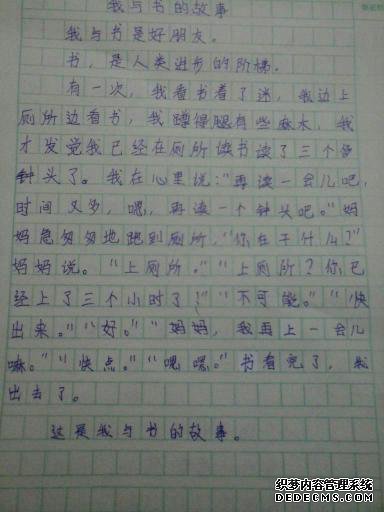 我与书的故事
我与书是好朋友。
书，是人类进步的阶梯。
有一次，我看书看了迷，我边上
厕所边看书，我蹲得腿有些麻木，我
才发觉我已经在厕所读书读了三个多
钟头了。我在心里说：“再读一会儿吧，
时间又多，嗯，再读一个钟头吧。”妈
妈急匆匆地跑到厕所，“你在干什么？”
妈妈说。“上厕所。”“上厕所？你已
经上了三个小时了！”“不可能。”“快
出来。”“好。”“妈妈，我再上一会儿
嘛。”“快点。”“嗯嗯。”书看完了，我
出去了。
这是我与书的故事。
织梦内容管理系统
DEDECMS.COM